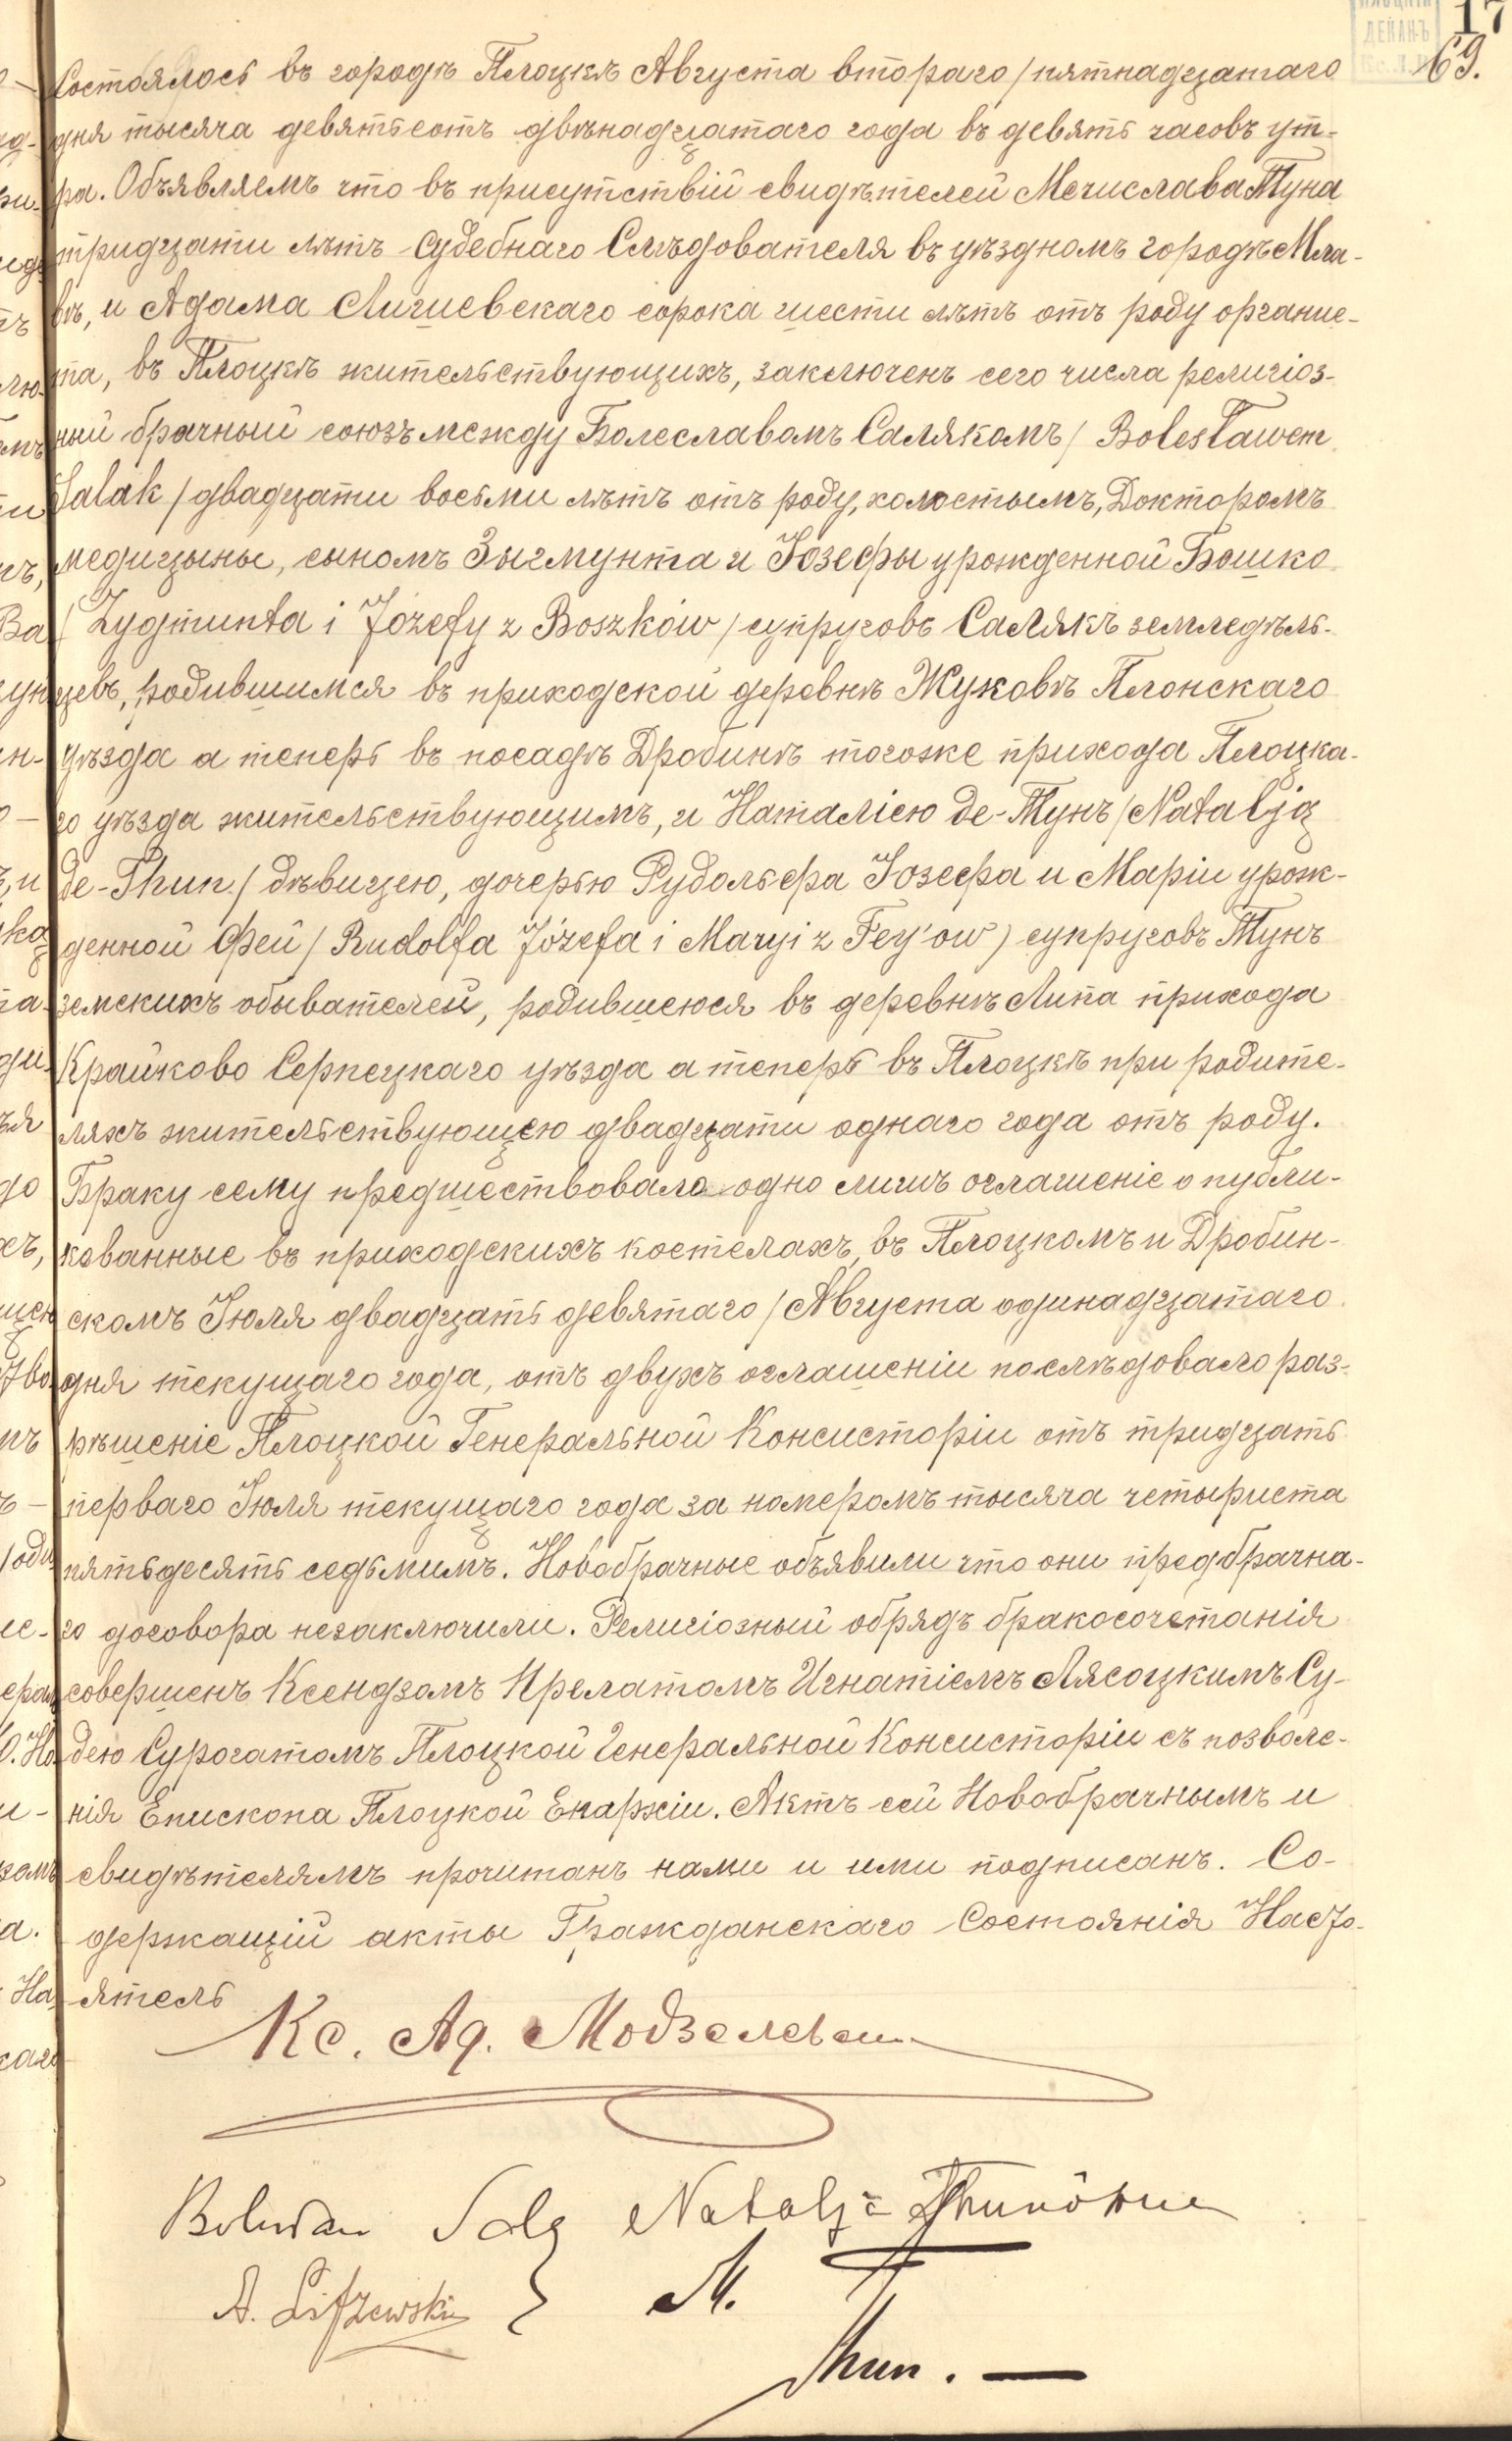 17
69.
ДЕКАНЪ
Состоялось въ городѣ Плоцкѣ Августа втораго / пятнадцатаго
дня тысяча девятьсотъ двѣнадцатаго года въ девять часовъ ут-
ра. Объявляемъ что въ присутствіи свидѣтелей Мечислава Туна
тридцати лѣтъ Судебнаго Слѣдователя въ уѣздномъ городѣ Мла-
вѣ, и Адама Лигиевскаго сорока шести лѣтъ отъ роду органис-
та, въ Плоцкѣ жительствующихъ, заключенъ сего числа религіоз-
ный брачный союзъ между Болеславомъ Салякомъ / Bolesławem
Salak / двадцати восьми лѣтъ отъ роду, холостымъ, Докторомъ
медицыны, сыномъ Зыгмунта и Іозефы урожденной Бошко
/ Zygmunta i Józefy z Boszków / супруговъ Салякъ земледѣль-
цевъ, родившимся въ приходской деревнѣ Жуковѣ Плонскаго
уѣзда а теперь въ посадѣ Дробинѣ тогоже прихода Плоцка-
го уѣзда жительствующимъ, и Наталіею де-Тунъ / Natalją
de-Thun / дѣвицею, дочерью Рудольфа Іозефа и Маріи урож-
денной Фей / Rudolfa Józefa i Maryi z Fey'ow) супруговъ Тунъ
земскихъ обывателей, родившеюся въ деревнѣ Липа прихода
Крайково Серпецкаго уѣзда а теперь въ Плоцкѣ при родите-
ляхъ жительствующею двадцати однаго года отъ роду.
Браку сему предшествовало одно лишъ оглашеніе опубли-
кованные въ приходскихъ костелахъ, въ Плоцкомъ и Дробин-
скомъ Іюля двадцать девятаго / Августа одинадцатаго
дня текущаго года, отъ двухъ оглашеніи послѣдовало раз-
рѣшеніе Плоцкой Генеральной Консисторіи отъ тридцать
перваго Іюля текущаго года за номеромъ тысяча четыриста
пятьдесять седьмимъ. Новобрачные объявили что они предбрачна-
го договора незаключили. Религіозный обрядъ бракосочетанія
совершенъ Ксендзомъ Прелатомъ Игнатіемъ Лясоцкимъ Су-
дею Сурогатомъ Плоцкой Генеральной Консисторіи съ позволе-
нія Епископа Плоцкой Епархіи. Актъ сей Новобрачнымъ и
свидѣтелямъ прочитанъ нами и ими подписанъ. Со-
держащій акты Гражданскаго Состоянія Насто-
ятель
Кс. Ад. Модзелевски
Natalja Thunówna
M.
Thun.